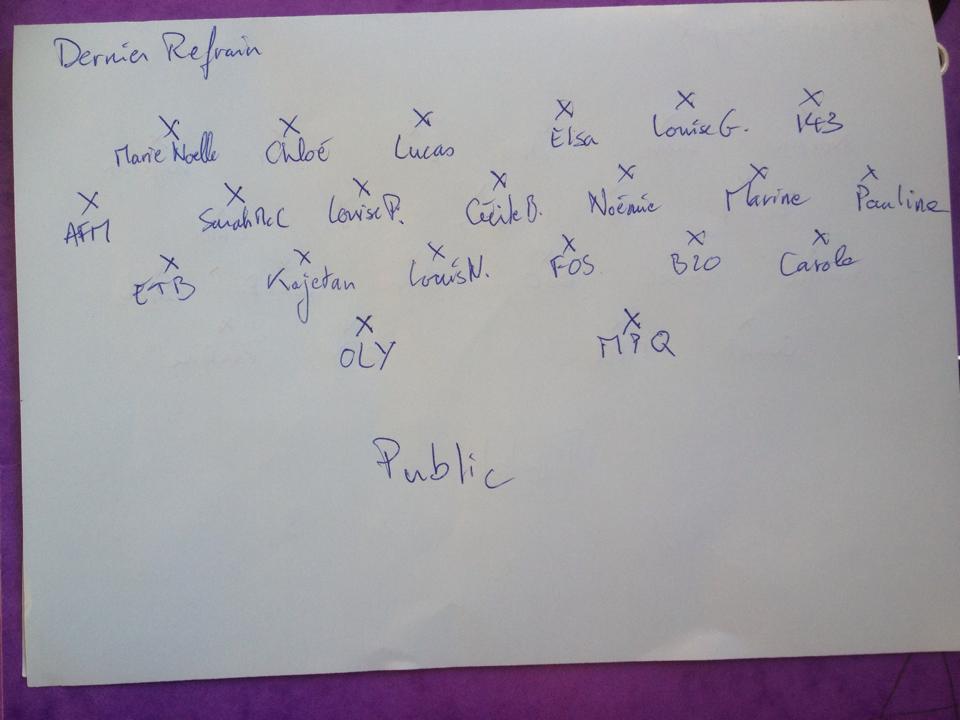 Dernier Refrain
X X X X X X
Marie Noelle Chloé Lucas Elsa Louise G. 143
X X X X X X X
AFM Sarah McC Louise P. Cécile B. Noémie Marine Pauline
X X X X X X
ETB Kajetan Louis N. FOS B20 Carole
X X
OLY MPQ
Public